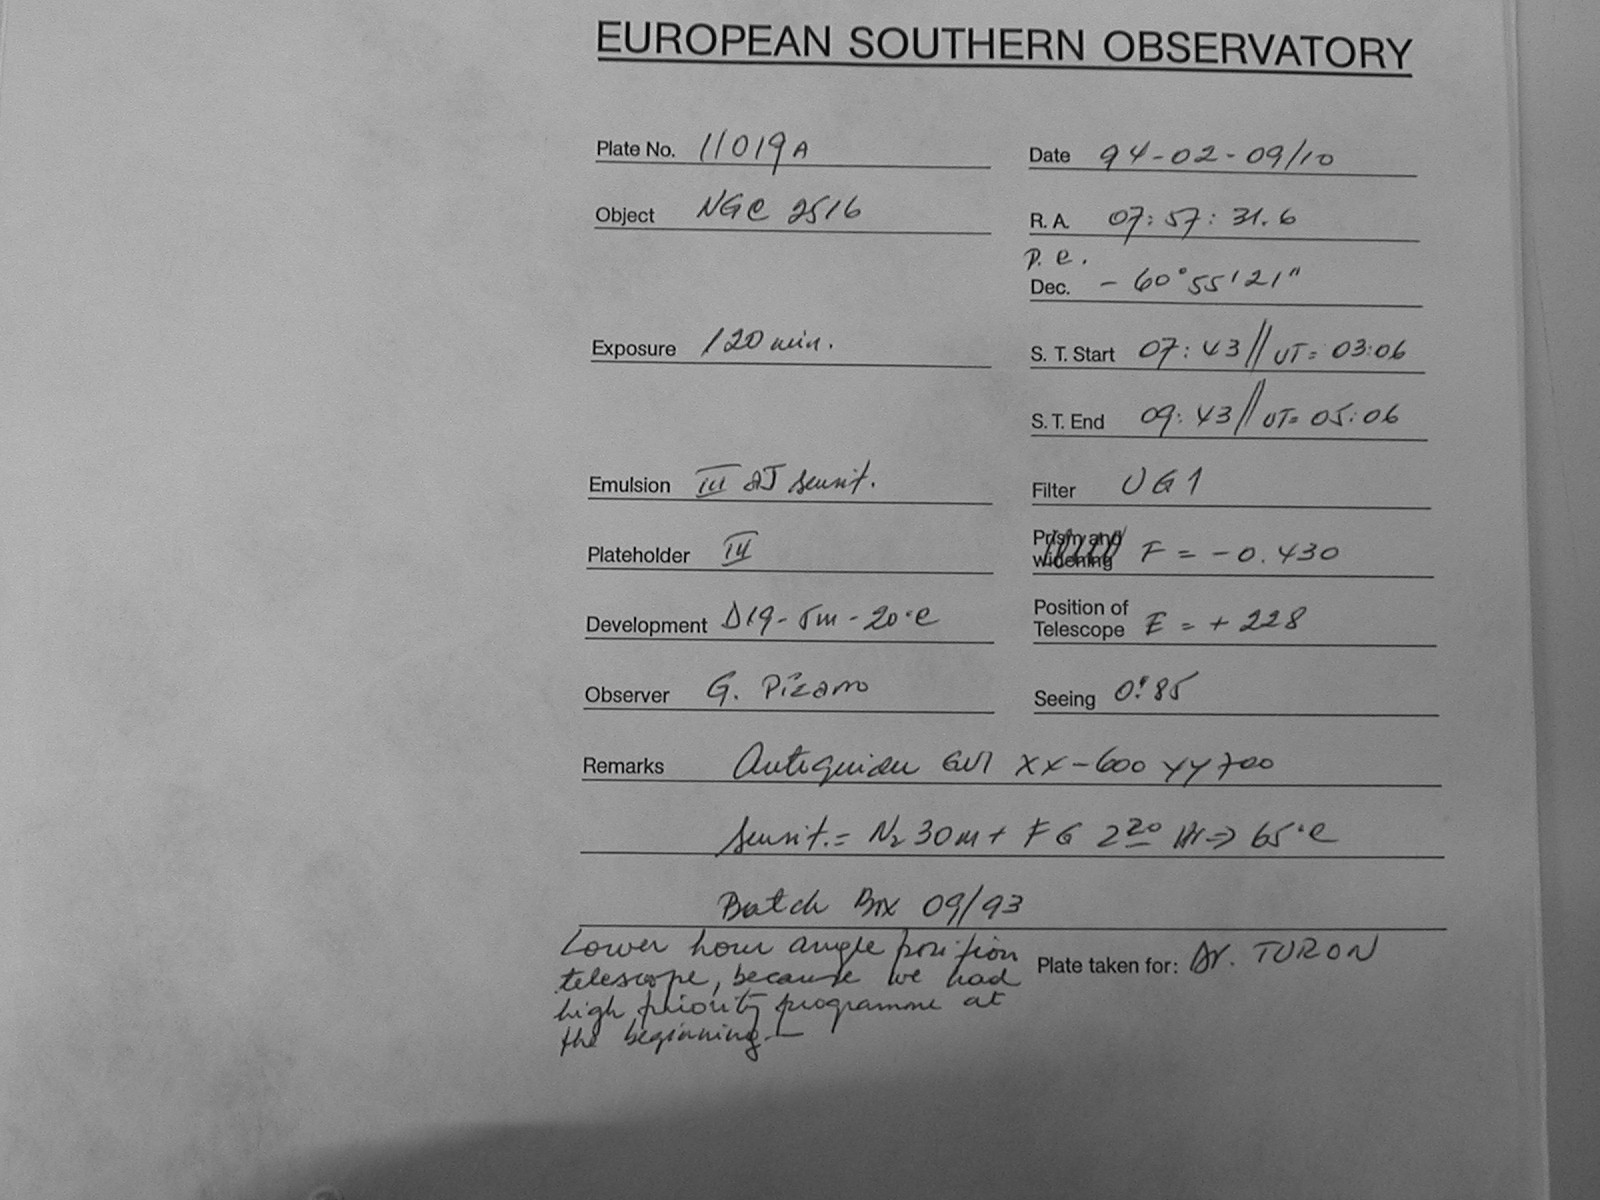 EUROPEAN SOUTHERN OBSERVATORY
Plate No. 11019A
Date 94-02-09/10
Object NGC 2516
R.A. 07:57:31.6
P.e.
Dec. -60°55'21"
Exposure 120 min.
S.T. Start 07:43 // UT= 03:06
S.T. End 09:43 // UT= 05:06
Emulsion III aJ sensit.
Filter UG1
Plateholder III
Prism and widening F = -0.430
Development D19-5m-20°C
Position of Telescope E = +228
Observer G. Pizarro
Seeing 0".85
Remarks Autoguider XX-600 YY700
Sensit.= N2 30m + FG 2 20 Hr => 65°C
Batch Box 09/93
Lower hour angle position
telescope, because we had
high priority programme at
the beginning.—
Plate taken for: Dr. TURON